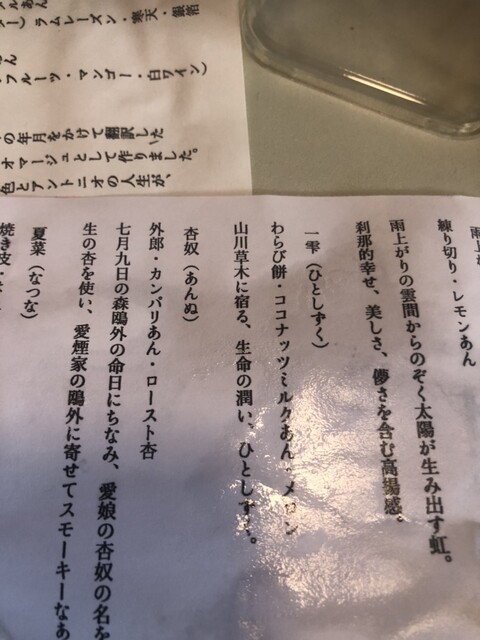 ルあん
ー）ラムレーズン・寒天・銀箔
さん
フルーツ・マンゴー・白ワイン）
の年月をかけて翻訳した
オマージュとして作りました。
色とアントニオの人生が、
雨上が
練り切り・レモンあん
雨上がりの雲間からのぞく太陽が生み出す虹。
刹那的幸せ、美しさ、儚さを含む高揚感。
一雫（ひとしずく）
わらび餅・ココナッツミルクあん・メロン
山川草木に宿る、生命の潤い、ひとしずく。
杏奴（あんぬ）
外郎・カンパリあん・ロースト杏
七月九日の森鴎外の命日にちなみ、愛娘の杏奴の名を
生の杏を使い、愛煙家の鴎外に寄せてスモーキーなあ
夏菜（なつな）
焼き皮・